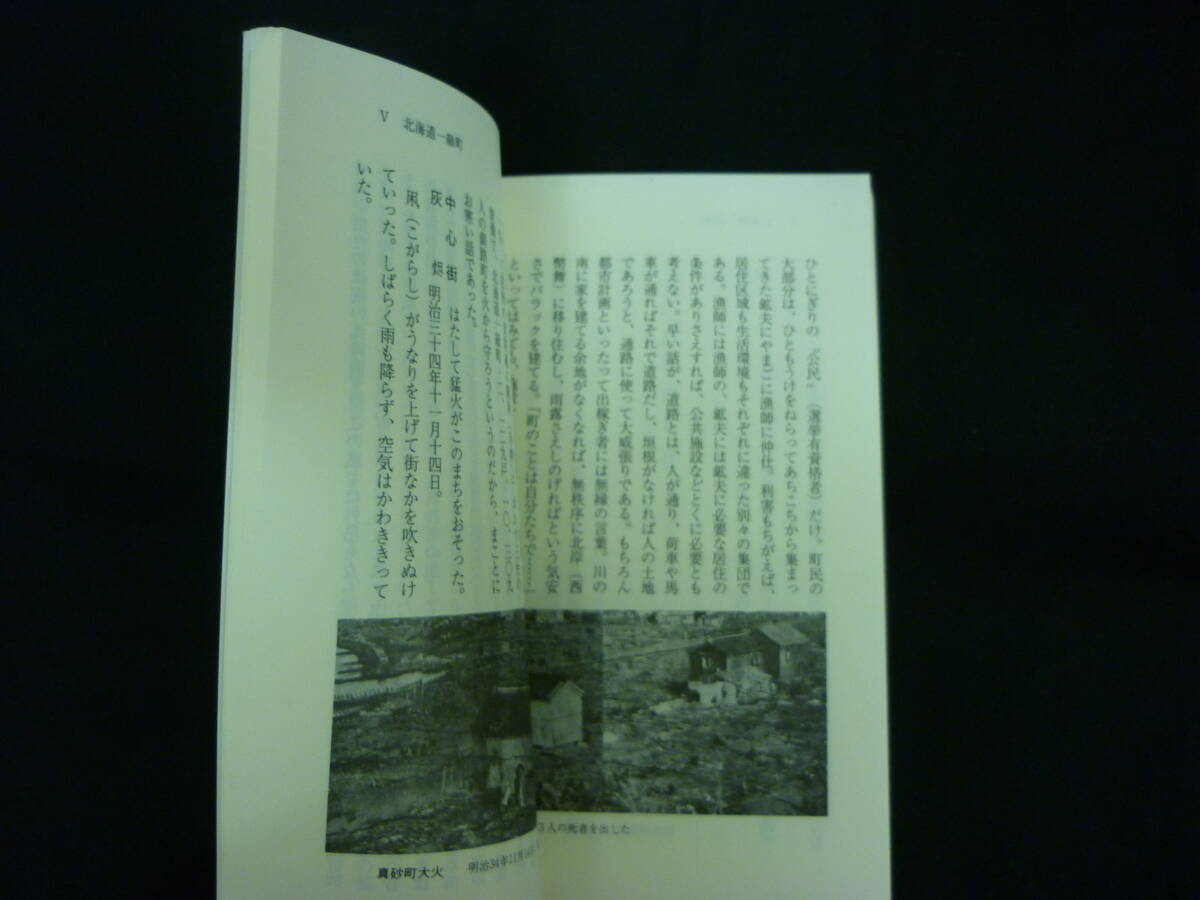 ひとにぎりの〝公民〟(選挙有資格者)だけ。町民の
大部分は、ひともうけをねらってあちこちから集まっ
てきた鉱夫にやまごに漁師に仲仕。利害もちがえば、
居住区域も生活環境もそれぞれに違った別々の集団で
ある。漁師には漁師の、鉱夫には鉱夫に必要な居住の
条件がありさえすれば、公共施設などとくに必要とも
考えない。早い話が、道路とは、人が通り、荷車や馬
車が通ればそれで道路だし、垣根がなければ人の土地
であろうと、通路に使って大威張りである。もちろん
都市計画といったって出稼ぎ者には無縁の言葉。川の
南に家を建てる余地がなくなれば、無秩序に北岸(西
幣舞)に移り住むし、雨露さえしのげればという気安
さでバラックを建てる。「町のことは自分たちで……」
といってはみても、
5人の死者を出した
V 北海道一級町
人の釧路町を火から守ろうというのだから、まことに
お寒い話であった。
中心街 はたして猛火がこのまちをおそった。
灰燼 明治三十四年十一月十四日。
凩(こがらし)がうなりを上げて街なかを吹きぬけ
ていった。しばらく雨も降らず、空気はかわききって
いた。
真砂町大火 明治34年11月14日